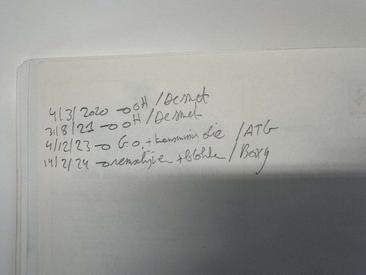 4/3/2020 → OH / Desmet
31/8/21 → OH / Desmet
4/12/23 → G.O. + transmissie olie / ATG
14/2/24 → remschijven + blokken / Borg